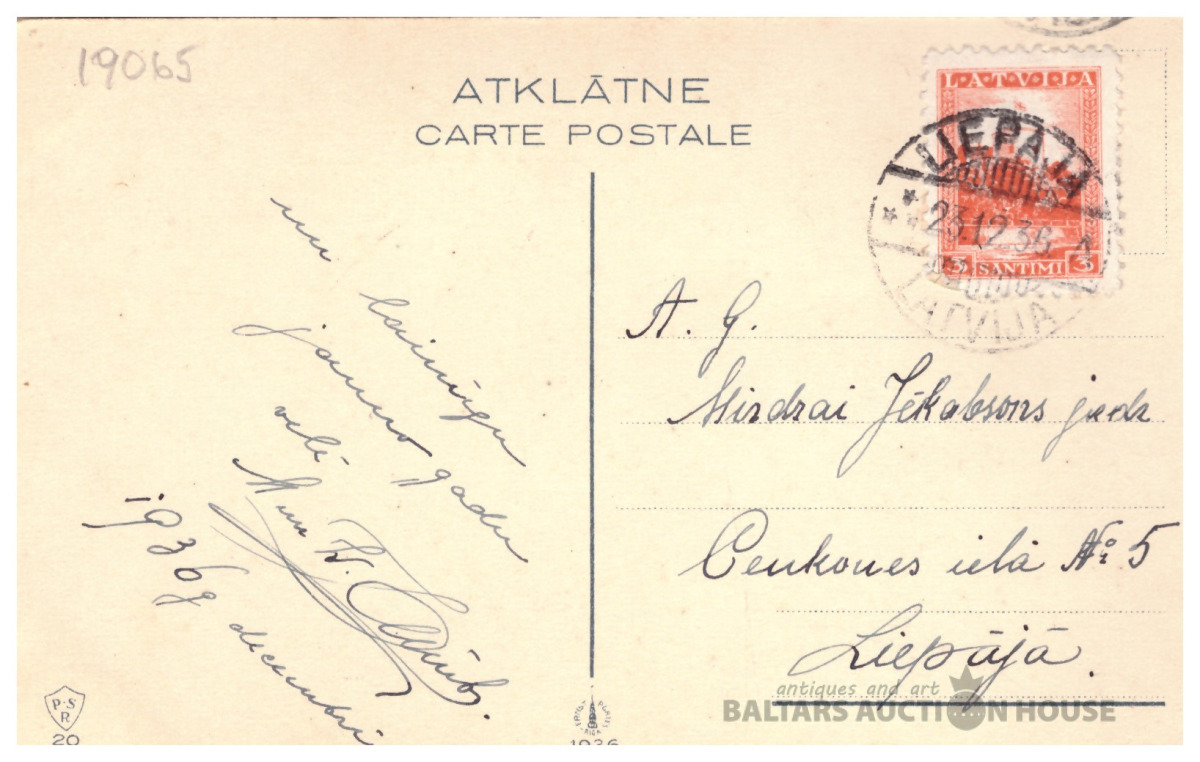 19065
ATKLĀTNE
CARTE POSTALE
LATVIJA
3 SANTIMI 3
LIEPAJA
23.12.36
LATVIJA
un
laimīgu
jauno gadu
vēlē
1936g decembrī
A. G.
Mirdzai Jēkabsons jadz
Cenkones ielā № 5
Liepājā.
P.S
R
20
1936
antiques and art
BALTARS AUCTION HOUSE